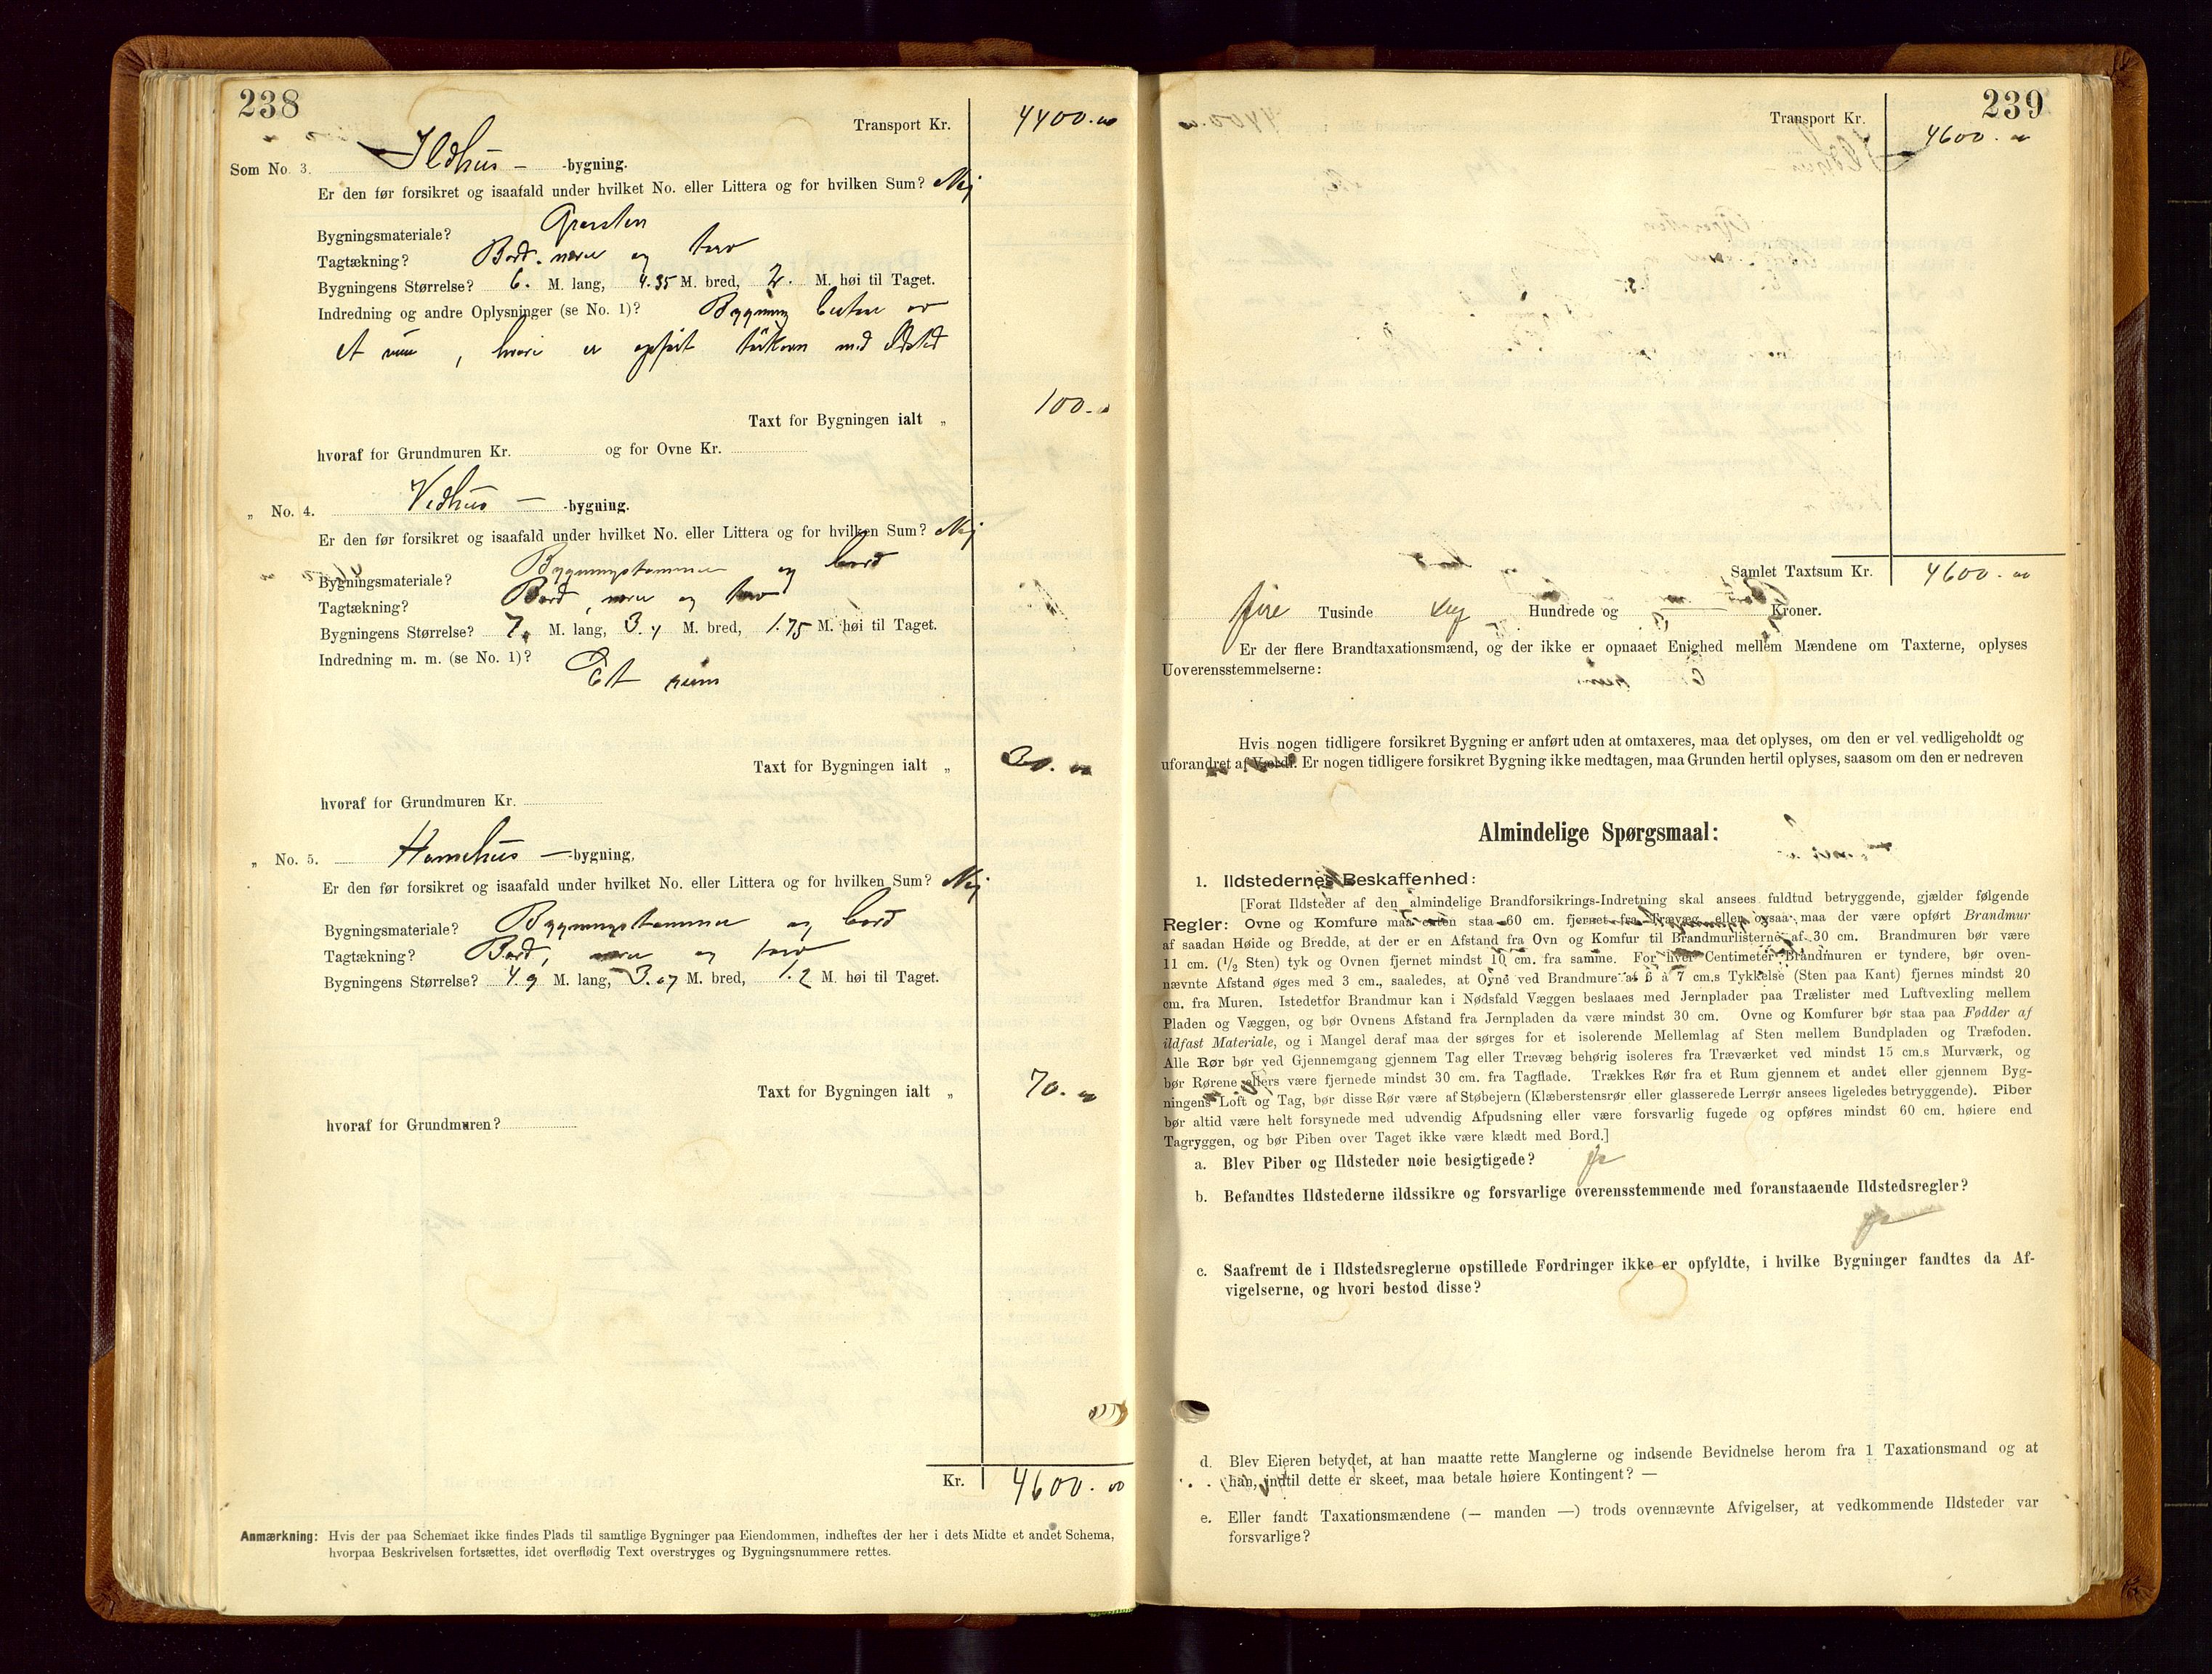 238
Transport Kr. 4400.00
Som No. 3. Ildhus — -bygning.
Er den før forsikret og isaafald under hvilket No. eller Littera og for hvilken Sum? Nej
Bygningsmateriale? Graasten
Tagtækning? Bord, næver og torv
Bygningens Størrelse? 6. M. lang, 4.35 M. bred, 2. M. høi til Taget.
Indredning og andre Oplysninger (se No. 1)? Bygning bestaar av
et rum, hvori er opført med Ildsted
Taxt for Bygningen ialt „ 100.00
hvoraf for Grundmuren Kr. og for Ovne Kr.
„ No. 4. Vedhus — -bygning.
Er den før forsikret og isaafald under hvilket No. eller Littera og for hvilken Sum? Nej
Bygningsmateriale? Bygningstømmer og bord
Tagtækning? Bord, næver og torv
Bygningens Størrelse? 7. M. lang, 3.4 M. bred, 1.75 M. høi til Taget.
Indredning m. m. (se No. 1)? Et rum
Taxt for Bygningen ialt „ 30.00
hvoraf for Grundmuren Kr.
„ No. 5. — -bygning,
Er den før forsikret og isaafald under hvilket No. eller Littera og for hvilken Sum? Nej
Bygningsmateriale? Bygningstømmer og bord
Tagtækning? Bord, næver og torv
Bygningens Størrelse? 4.9 M. lang, 3.07 M. bred, 1.2 M. høi til Taget.
Taxt for Bygningen ialt „ 70.00
hvoraf for Grundmuren?
Kr. 4600.00
Anmærkning: Hvis der paa Schemaet ikke findes Plads til samtlige Bygninger paa Eiendommen, indheftes der her i dets Midte et andet Schema,
hvorpaa Beskrivelsen fortsættes, idet overflødig Text overstryges og Bygningsnummere rettes.
239
Transport Kr. 4600.00
Samlet Taxtsum Kr. 4600.00
fire Tusinde sex Hundrede og — Kroner.
Er der flere Brandtaxationsmænd, og der ikke er opnaaet Enighed mellem Mændene om Taxterne, oplyses
Uoverensstemmelserne:
Hvis nogen tidligere forsikret Bygning er anført uden at omtaxeres, maa det oplyses, om den er vel vedligeholdt og
uforandret af Værdi. Er nogen tidligere forsikret Bygning ikke medtagen, maa Grunden hertil oplyses, saasom om den er nedreven
Almindelige Spørgsmaal:
1. Ildstedernes Beskaffenhed:
[Forat Ildsteder af den almindelige Brandforsikrings-Indretning skal ansees fuldtud betryggende, gjælder følgende
Regler: Ovne og Komfure maa enten staa 60 cm. fjernet fra Trævæg eller ogsaa maa der være opført Brandmur
af saadan Høide og Bredde, at der er en Afstand fra Ovn og Komfur til Brandmurlisterne af 30 cm. Brandmuren bør være
11 cm. (1/2 Sten) tyk og Ovnen fjernet mindst 10 cm. fra samme. For hver Centimeter Brandmuren er tyndere, bør oven-
nævnte Afstand øges med 3 cm., saaledes, at Ovne ved Brandmure af 6 à 7 cm.s Tykkelse (Sten paa Kant) fjernes mindst 20
cm. fra Muren. Istedetfor Brandmur kan i Nødsfald Væggen beslaaes med Jernplader paa Trælister med Luftvexling mellem
Pladen og Væggen, og bør Ovnens Afstand fra Jernpladen da være mindst 30 cm. Ovne og Komfurer bør staa paa Fødder af
ildfast Materiale, og i Mangel deraf maa der sørges for et isolerende Mellemlag af Sten mellem Bundpladen og Træfoden.
Alle Rør bør ved Gjennemgang gjennem Tag eller Trævæg behørig isoleres fra Træværket ved mindst 15 cm.s Murværk, og
bør Rørene ellers være fjernede mindst 30 cm. fra Tagflade. Trækkes Rør fra et Rum gjennem et andet eller gjennem Byg-
ningens Loft og Tag, bør disse Rør være af Støbejern (Klæberstensrør eller glasserede Lerrør ansees ligeledes betryggende). Piber
bør altid være helt forsynede med udvendig Afpudsning eller være forsvarlig fugede og opføres mindst 60 cm. høiere end
Tagryggen, og bør Piben over Taget ikke være klædt med Bord.]
a. Blev Piber og Ildsteder nøie besigtigede? ja
b. Befandtes Ildstederne ildssikre og forsvarlige overensstemmende med foranstaaende Ildstedsregler?
ja
c. Saafremt de i Ildstedsreglerne opstillede Fordringer ikke er opfyldte, i hvilke Bygninger fandtes da Af-
vigelserne, og hvori bestod disse?
d. Blev Eieren betydet, at han maatte rette Manglerne og indsende Bevidnelse herom fra 1 Taxationsmand og at
han, indtil dette er skeet, maa betale høiere Kontingent? —
e. Eller fandt Taxationsmændene (— manden —) trods ovennævnte Afvigelser, at vedkommende Ildsteder var
forsvarlige?